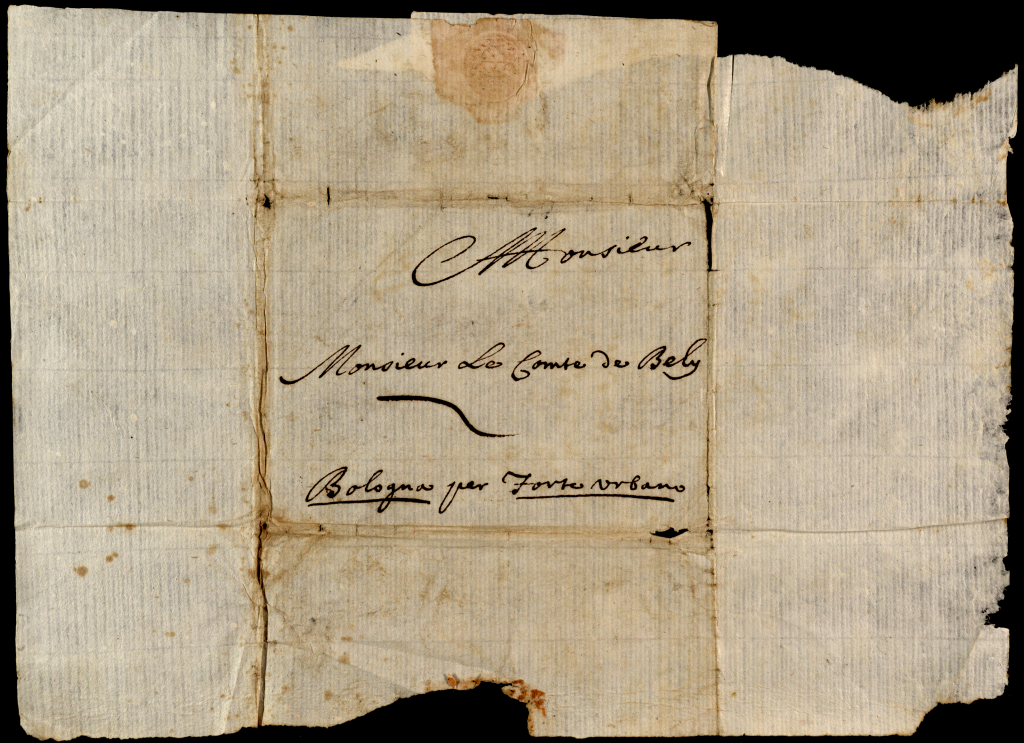 Monsieur
Monsieur Le Comte de Bely
Bologna per Forte vrbano